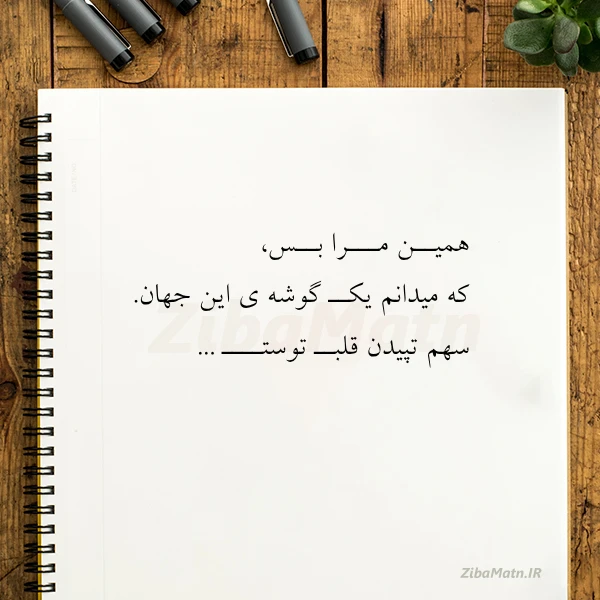 همیـــن مـــــرا بـــس،
که میدانم یکـــ گوشه ی این جهان.
سهم تپیدن قلبـــ توستـــــــ ...
ZibaMatn
ZibaMatn.IR